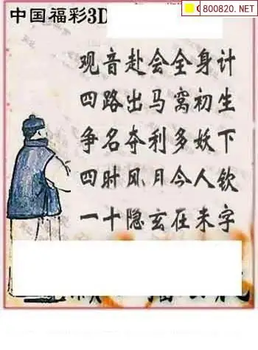 800820.NET
中国福彩3D
观音赴会全身计
四路出马窝初生
争名夺利多妖下
四时风月今人钦
一十隐玄在未字